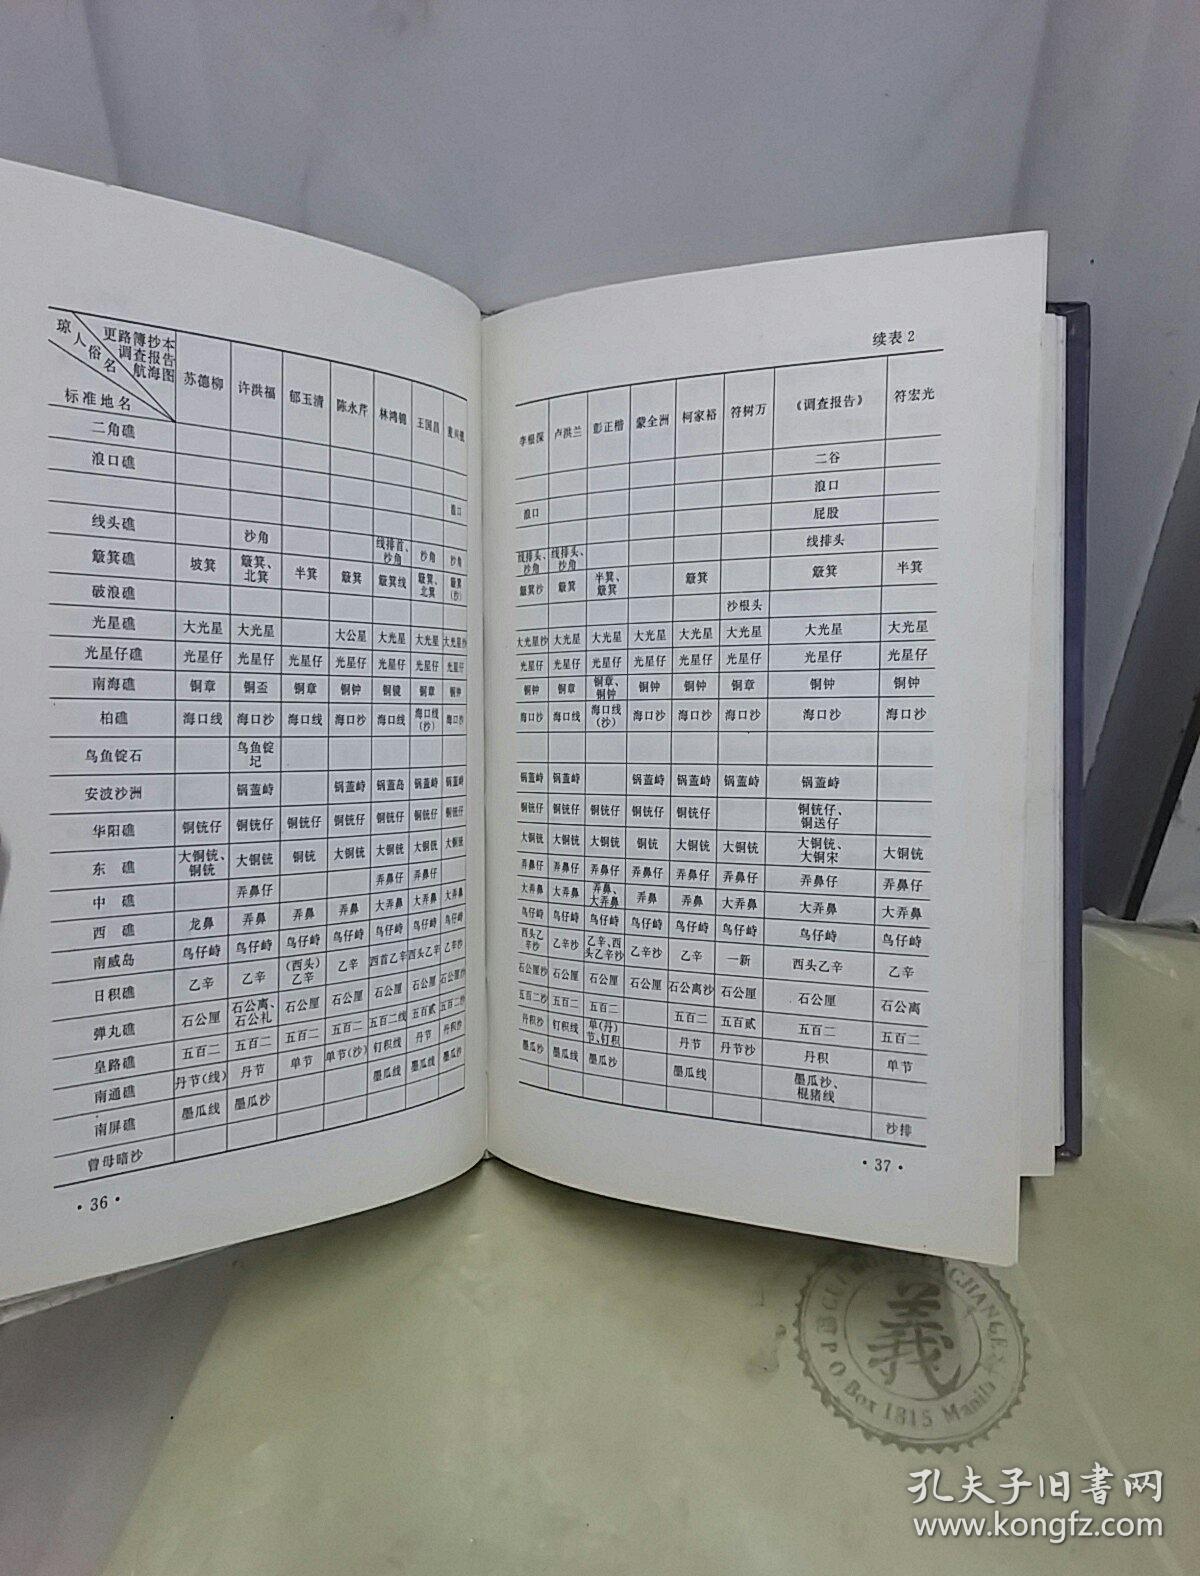 琼人俗名
更路簿抄本
调查报告
航海图
标准地名
苏德柳 许洪福 郁玉清 陈永芹 林鸿锦 王国昌
二角礁
浪口礁
浪口
线头礁 沙角 线排首、沙角 沙角 沙角
簸箕礁 坡箕 簸箕、北箕 半箕 簸箕 簸箕线 簸箕、北箕 簸箕(沙)
破浪礁
光星礁 大光星 大光星 大公星 大光星 大光星 大光星沙
光星仔礁 光星仔 光星仔 光星仔 光星仔 光星仔 光星仔 光星仔
南海礁 铜章 铜盃 铜章 铜钟 铜键 铜章 铜钟
柏礁 海口线 海口沙 海口线 海口沙 海口线 海口线(沙) 海口沙
鸟鱼锭石 鸟鱼锭圮
安波沙洲 锅盖峙 锅盖峙 锅盖岛 锅盖峙 锅盖峙
华阳礁 铜铳仔 铜铳仔 铜铳仔 铜铳仔 铜铳仔 铜铳仔 铜铳仔
东礁 大铜铳、铜铳 大铜铳 铜铳 大铜铳 大铜铳 大铜铳 大铜铳
中礁 弄鼻仔 弄鼻仔 弄鼻仔
西礁 龙鼻 弄鼻 弄鼻 弄鼻 大弄鼻 大弄鼻 大弄鼻
南威岛 鸟仔峙 鸟仔峙 鸟仔峙 鸟仔峙 鸟仔峙 鸟仔峙 鸟仔峙
日积礁 乙辛 乙辛 (西头)乙辛 乙辛 西首乙辛 西头乙辛 乙辛沙
弹丸礁 石公厘 石公离、石公礼 石公厘 石公厘 石公厘 石公厘 石公厘沙
皇路礁 五百二 五百二 五百二 五百二 五百二线 五百贰 五百二沙
南通礁 丹节(线) 丹节 单节 单节(沙) 钉积线 丹节 丹积沙
南屏礁 墨瓜线 墨瓜沙 墨瓜线 墨瓜线 墨瓜沙
曾母暗沙
·36·
续表2
李根深 卢洪兰 彭正楷 蒙全洲 柯家裕 符树万 《调查报告》 符宏光
二谷
浪口
浪口 屁股
线排头、沙角 线排头、沙角 线排头
簸箕沙 簸箕 半箕、簸箕 簸箕 簸箕 半箕
沙根头
大光星沙 大光星 大光星 大光星 大光星 大光星 大光星 大光星
光星仔 光星仔 光星仔 光星仔 光星仔 光星仔 光星仔 光星仔
铜钟 铜章 铜章、铜钟 铜钟 铜钟 铜章 铜钟 铜钟
海口沙 海口线 海口线(沙) 海口沙 海口沙 海口沙 海口沙 海口沙
锅盖峙 锅盖峙 锅盖峙 锅盖峙 锅盖峙 锅盖峙
铜铳仔 铜铳仔 铜铳仔 铜铳仔 铜铳仔 铜铳仔、铜送仔
大铜铳 大铜铳 大铜铳 铜铳 大铜铳 大铜铳 大铜铳、大铜宋 大铜铳
弄鼻仔 弄鼻仔 弄鼻仔 弄鼻仔 弄鼻仔 弄鼻仔 弄鼻仔 弄鼻仔
大弄鼻 大弄鼻 弄鼻、大弄鼻 弄鼻 弄鼻 大弄鼻 大弄鼻 大弄鼻
鸟仔峙 鸟仔峙 鸟仔峙 鸟仔峙 鸟仔峙 鸟仔峙 鸟仔峙 鸟仔峙
西头乙辛沙 乙辛沙 乙辛、西头乙辛沙 乙辛沙 乙辛 一新 西头乙辛 乙辛
石公厘沙 石公厘 石公厘 石公厘 石公离沙 石公厘 石公厘 石公离
五百二沙 五百二 五百二 五百二 五百贰 五百二 五百二
丹积沙 钉积线 单(丹)节、钉积 丹节 丹节沙 丹积 单节
墨瓜沙 墨瓜线 墨瓜沙 墨瓜线 墨瓜沙、棍猪线
沙排
·37·
義
PO Box 1815 Manila
孔夫子旧书网
www.kongfz.com